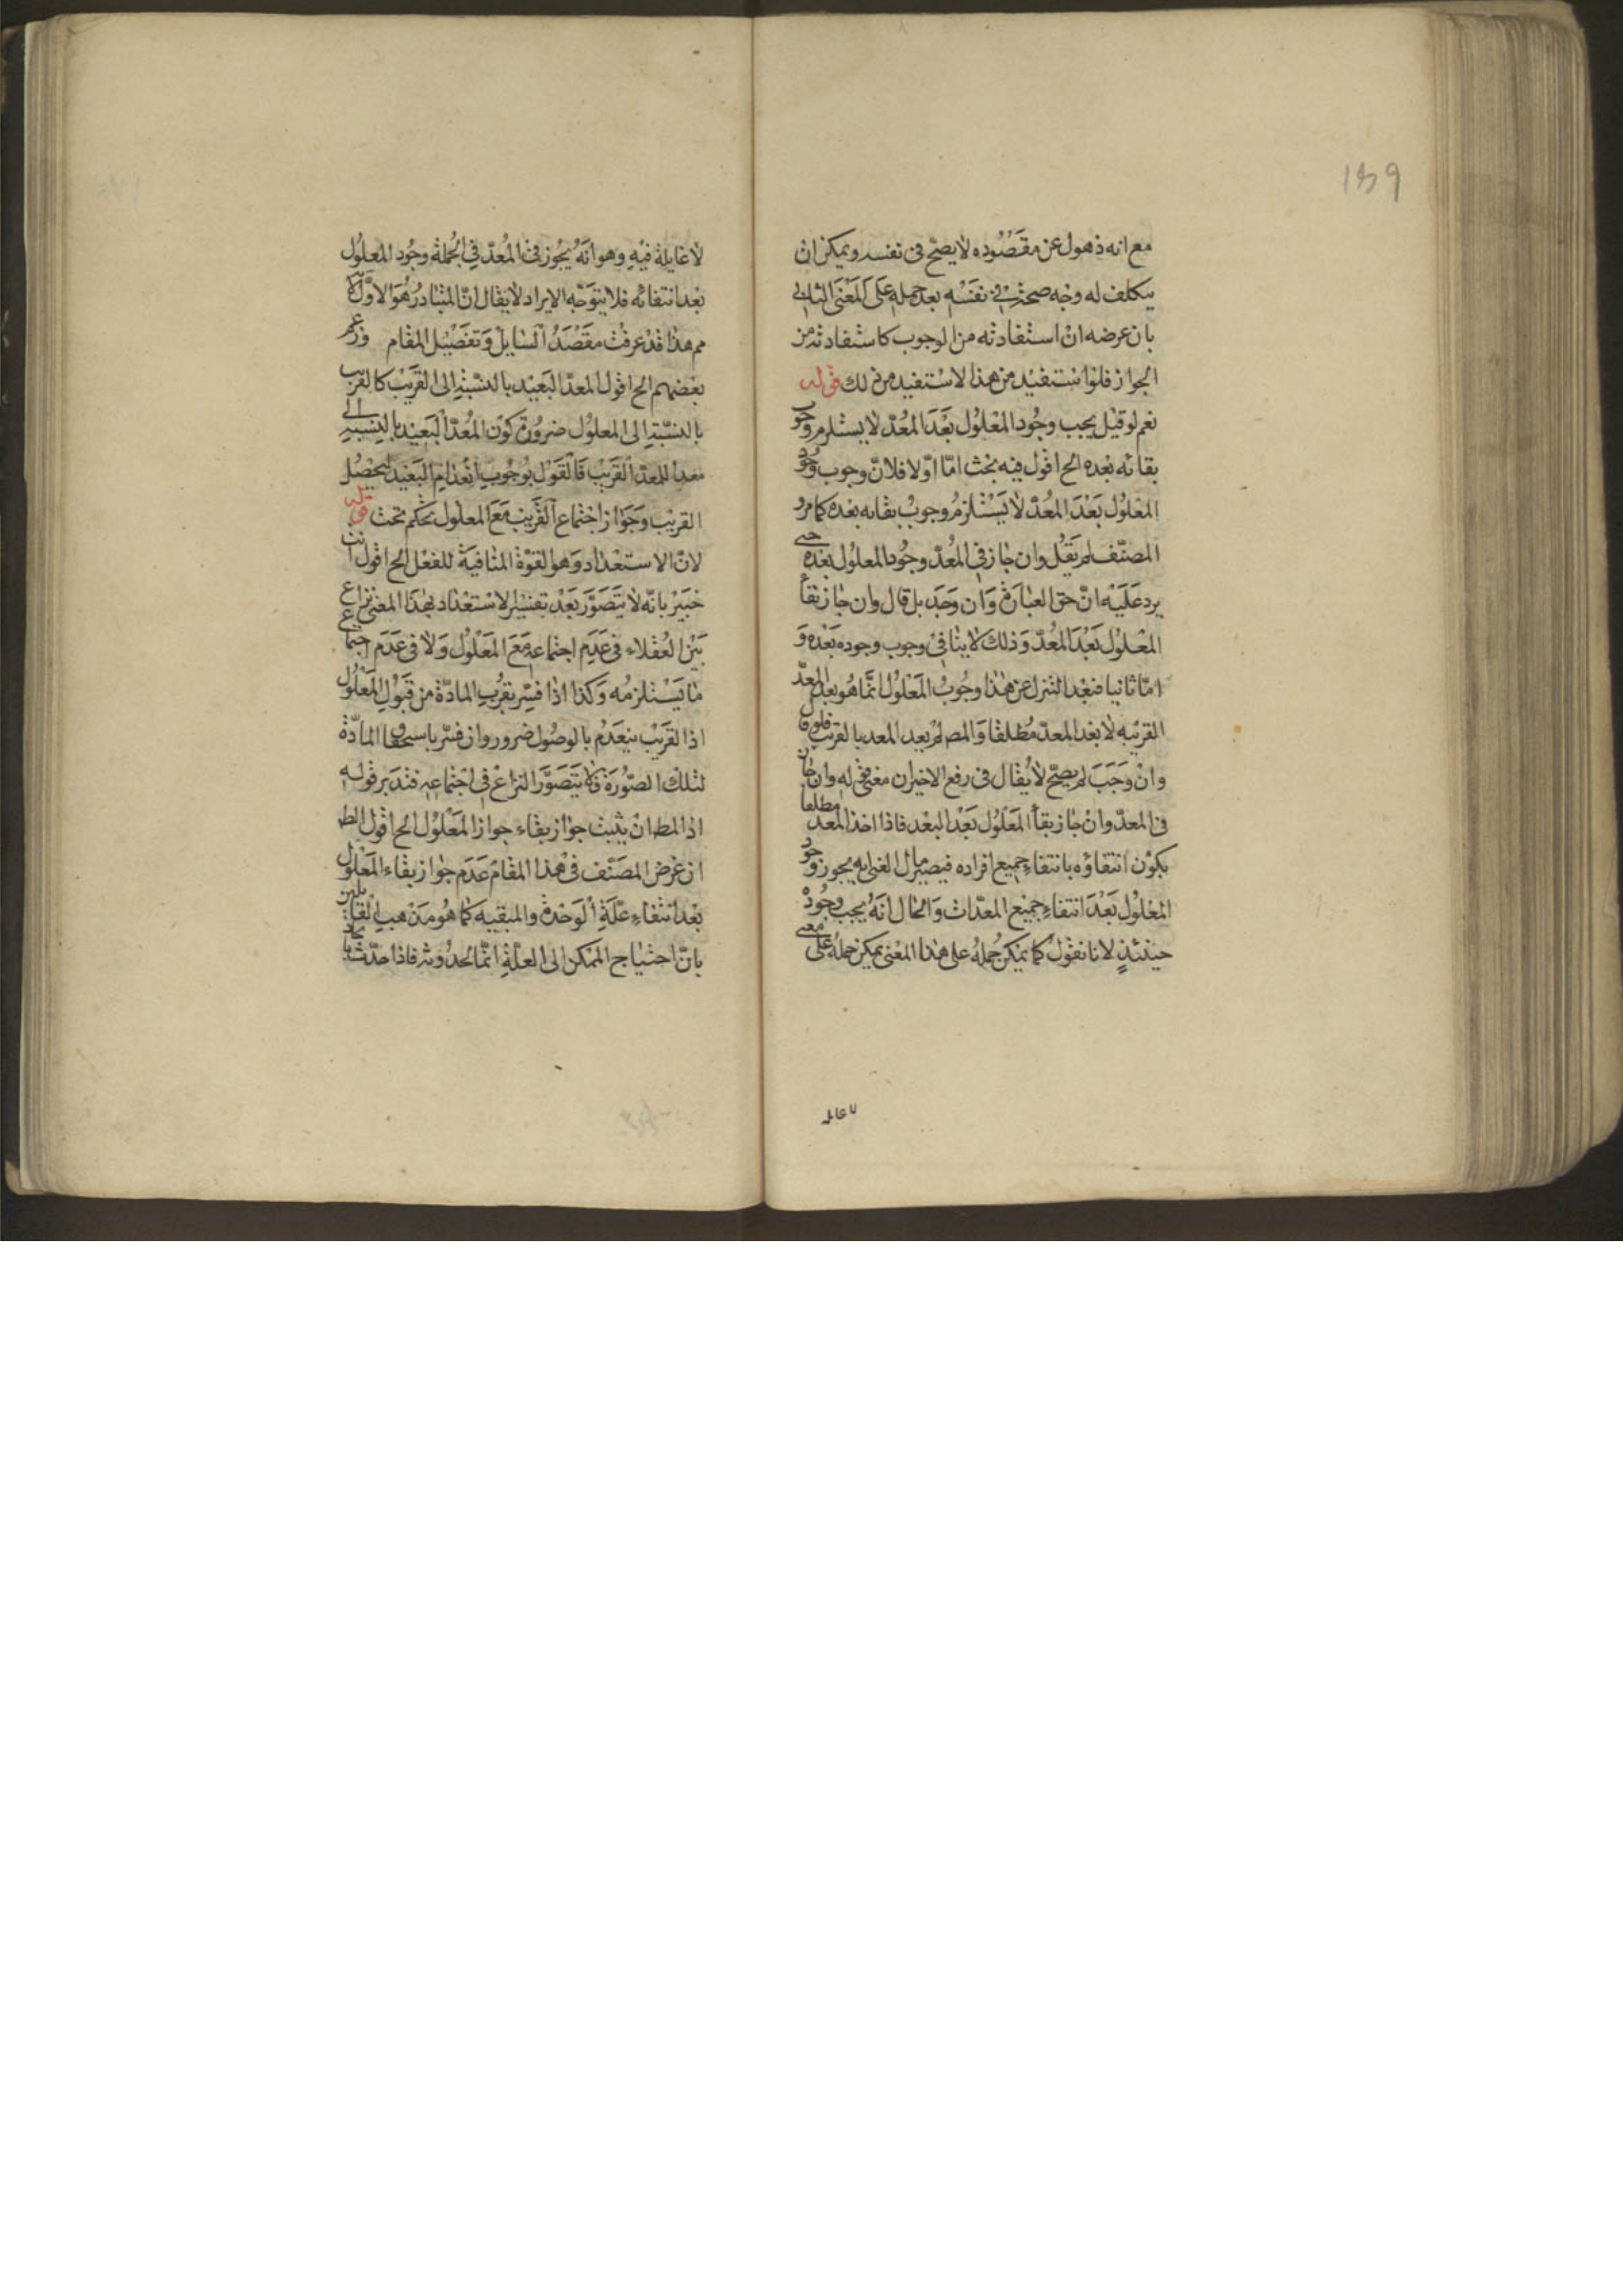 ١٣٩
مع انه ذهول عن مقصوده لا يصح في نفسه ويمكن ان
يتكلف له وجه صحة في نفسه بعد حمله على المعنى الثاني
بان غرضه ان استفادته من الوجوب كاستفادته من
الجواز فلو استفيد من هذا لاستفيد من ذلك قوله
نعم لو قيل يجب وجود المعلول بعد المعد لا يستلزم وجوب
بقائه بعده الخ اقول فيه بحث اما اولا فلان وجوب وجود
المعلول بعد المعد لا يستلزم وجوب بقائه بعده كما مر و
المصنف لم يقل وان جاز في المعد وجود المعلول بعده حتى
يرد عليه ان حق العبارة وان وجب بل قال وان جاز بقاء
المعلول بعد المعد وذلك لا ينافي وجوب وجوده بعده و
اما ثانيا فبعد التنزل عن هذا وجوب المعلول انما هو بعد المعد
القريب لا بعد المعد مطلقا والمص لم يقيد المعد بالقريب فلو قال
وان وجب لم يصح لا يقال في رفع الاخير ان معنى قوله وان جاز
في المعد وان جاز بقاء المعلول بعد البعد فاذا اخذ المعد مطلقا
يكون انتفاؤه بانتفاء جميع افراده فيصير مآل المعنى انه يجوز وجود
المعلول بعد انتفاء جميع المعدات والحال انه يجب وجوده
حينئذ لانا نقول كما يمكن حمله على هذا المعنى يمكن حمله على معنى
لا غايلة
لا غايلة فيه وهو انه يجوز في المعد في الجملة وجود المعلول
بعد انتفائه فلا يتوجه الايراد لا يقال ان المتبادر هو الاول لانا
مم هذا قد عرفت مقصد السايل وتفصيل المقام وزعم
بعضهم الخ اقول المعد البعيد بالنسبة الى القريب كالقريب
بالنسبة الى المعلول ضرورة كون المعد البعيد بالنسبة الى
معدا للمعد القريب فالقول بوجوب انعدام البعيد ليحصل
القريب وجواز اجتماع القريب مع المعلول تحكم بحت قوله
لان الاستعداد وهو القوة المنافية للفعل الخ اقول انت
خبير بانه لا يتصور بعد تفسير الاستعداد بهذا المعنى نزاع
بين العقلاء في عدم اجتماعه مع المعلول ولا في عدم اجتماع
ما يستلزمه وكذا اذا فسر بقرب المادة من قبول المعلول
اذ القريب ينعدم بالوصول ضرور وان فسر باستحقاق المادة
لتلك الصورة فلا يتصور النزاع في اجتماعه فتدبر قوله
اذ المط ان يثبت جواز بقاء جواز المعلول الخ اقول الظ
ان غرض المصنف في هذا المقام عدم جواز بقاء المعلول
بعد انتفاء علة الوحدة والمبقيه كما هو مذهب القائلين
بان احتياج الممكن الى العلة انما لحدوثه فاذا حدث